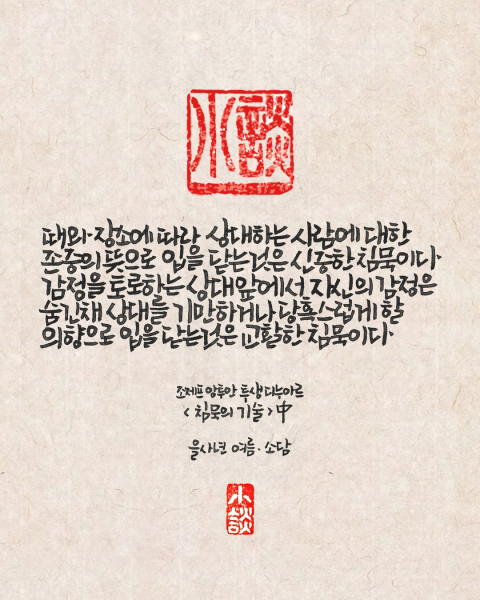 小談
때와 장소에 따라 상대하는 사람에 대한
존중의 뜻으로 입을 닫는 것은 신중한 침묵이다.
감정을 토로하는 상대 앞에서 자신의 감정은
숨긴채 상대를 기만하거나 당혹스럽게 할
의향으로 입을 닫는 것은 교활한 침묵이다.
조제프 앙투안 투생 디누아르
<침묵의 기술> 中
을사년 여름. 소담
小談